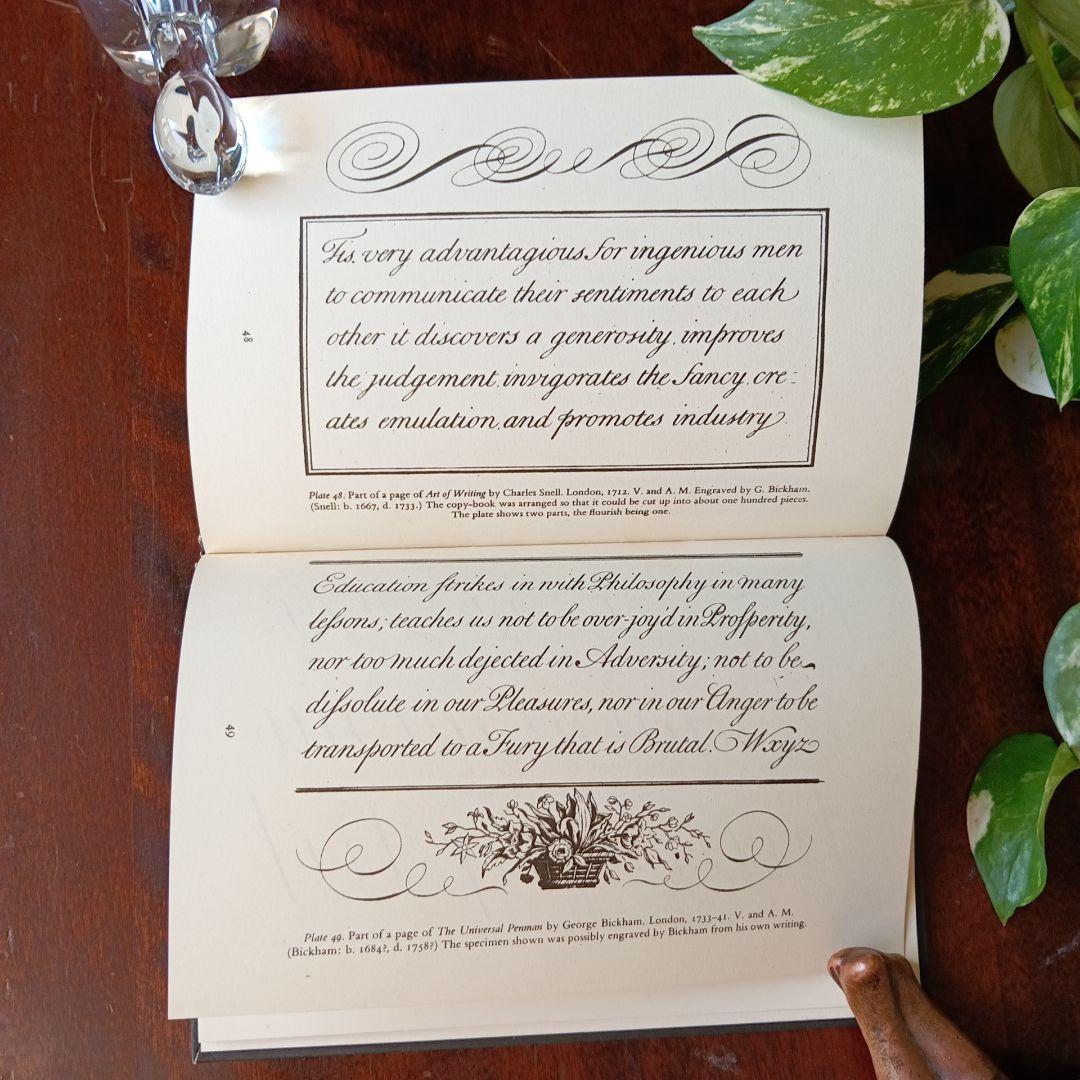 48
Tis very advantagious for ingenious men
to communicate their sentiments to each
other it discovers a generosity, improves
the judgement, invigorates the fancy, cre-
ates emulation, and promotes industry.
Plate 48. Part of a page of Art of Writing by Charles Snell. London, 1712. V. and A. M. Engraved by G. Bickham.
(Snell: b. 1667, d. 1733.) The copy-book was arranged so that it could be cut up into about one hundred pieces.
The plate shows two parts, the flourish being one.
49
Education ſtrikes in with Philosophy in many
leſsons; teaches us not to be over-joy'd in Proſperity,
nor too much dejected in Adversity; not to be
diſsolute in our Pleasures, nor in our Anger to be
transported to a Fury that is Brutal. Wxyz
Plate 49. Part of a page of The Universal Penman by George Bickham. London, 1733-41. V. and A. M.
(Bickham: b. 1684?, d. 1758?) The specimen shown was possibly engraved by Bickham from his own writing.